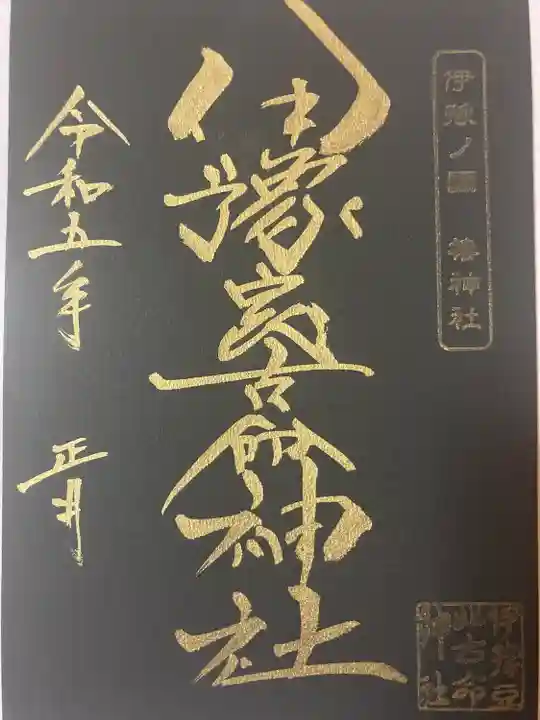 伊豫ノ國 椿神社
伊豫豆比古命神社
令和五年 正月
伊豫豆
比古命
神社